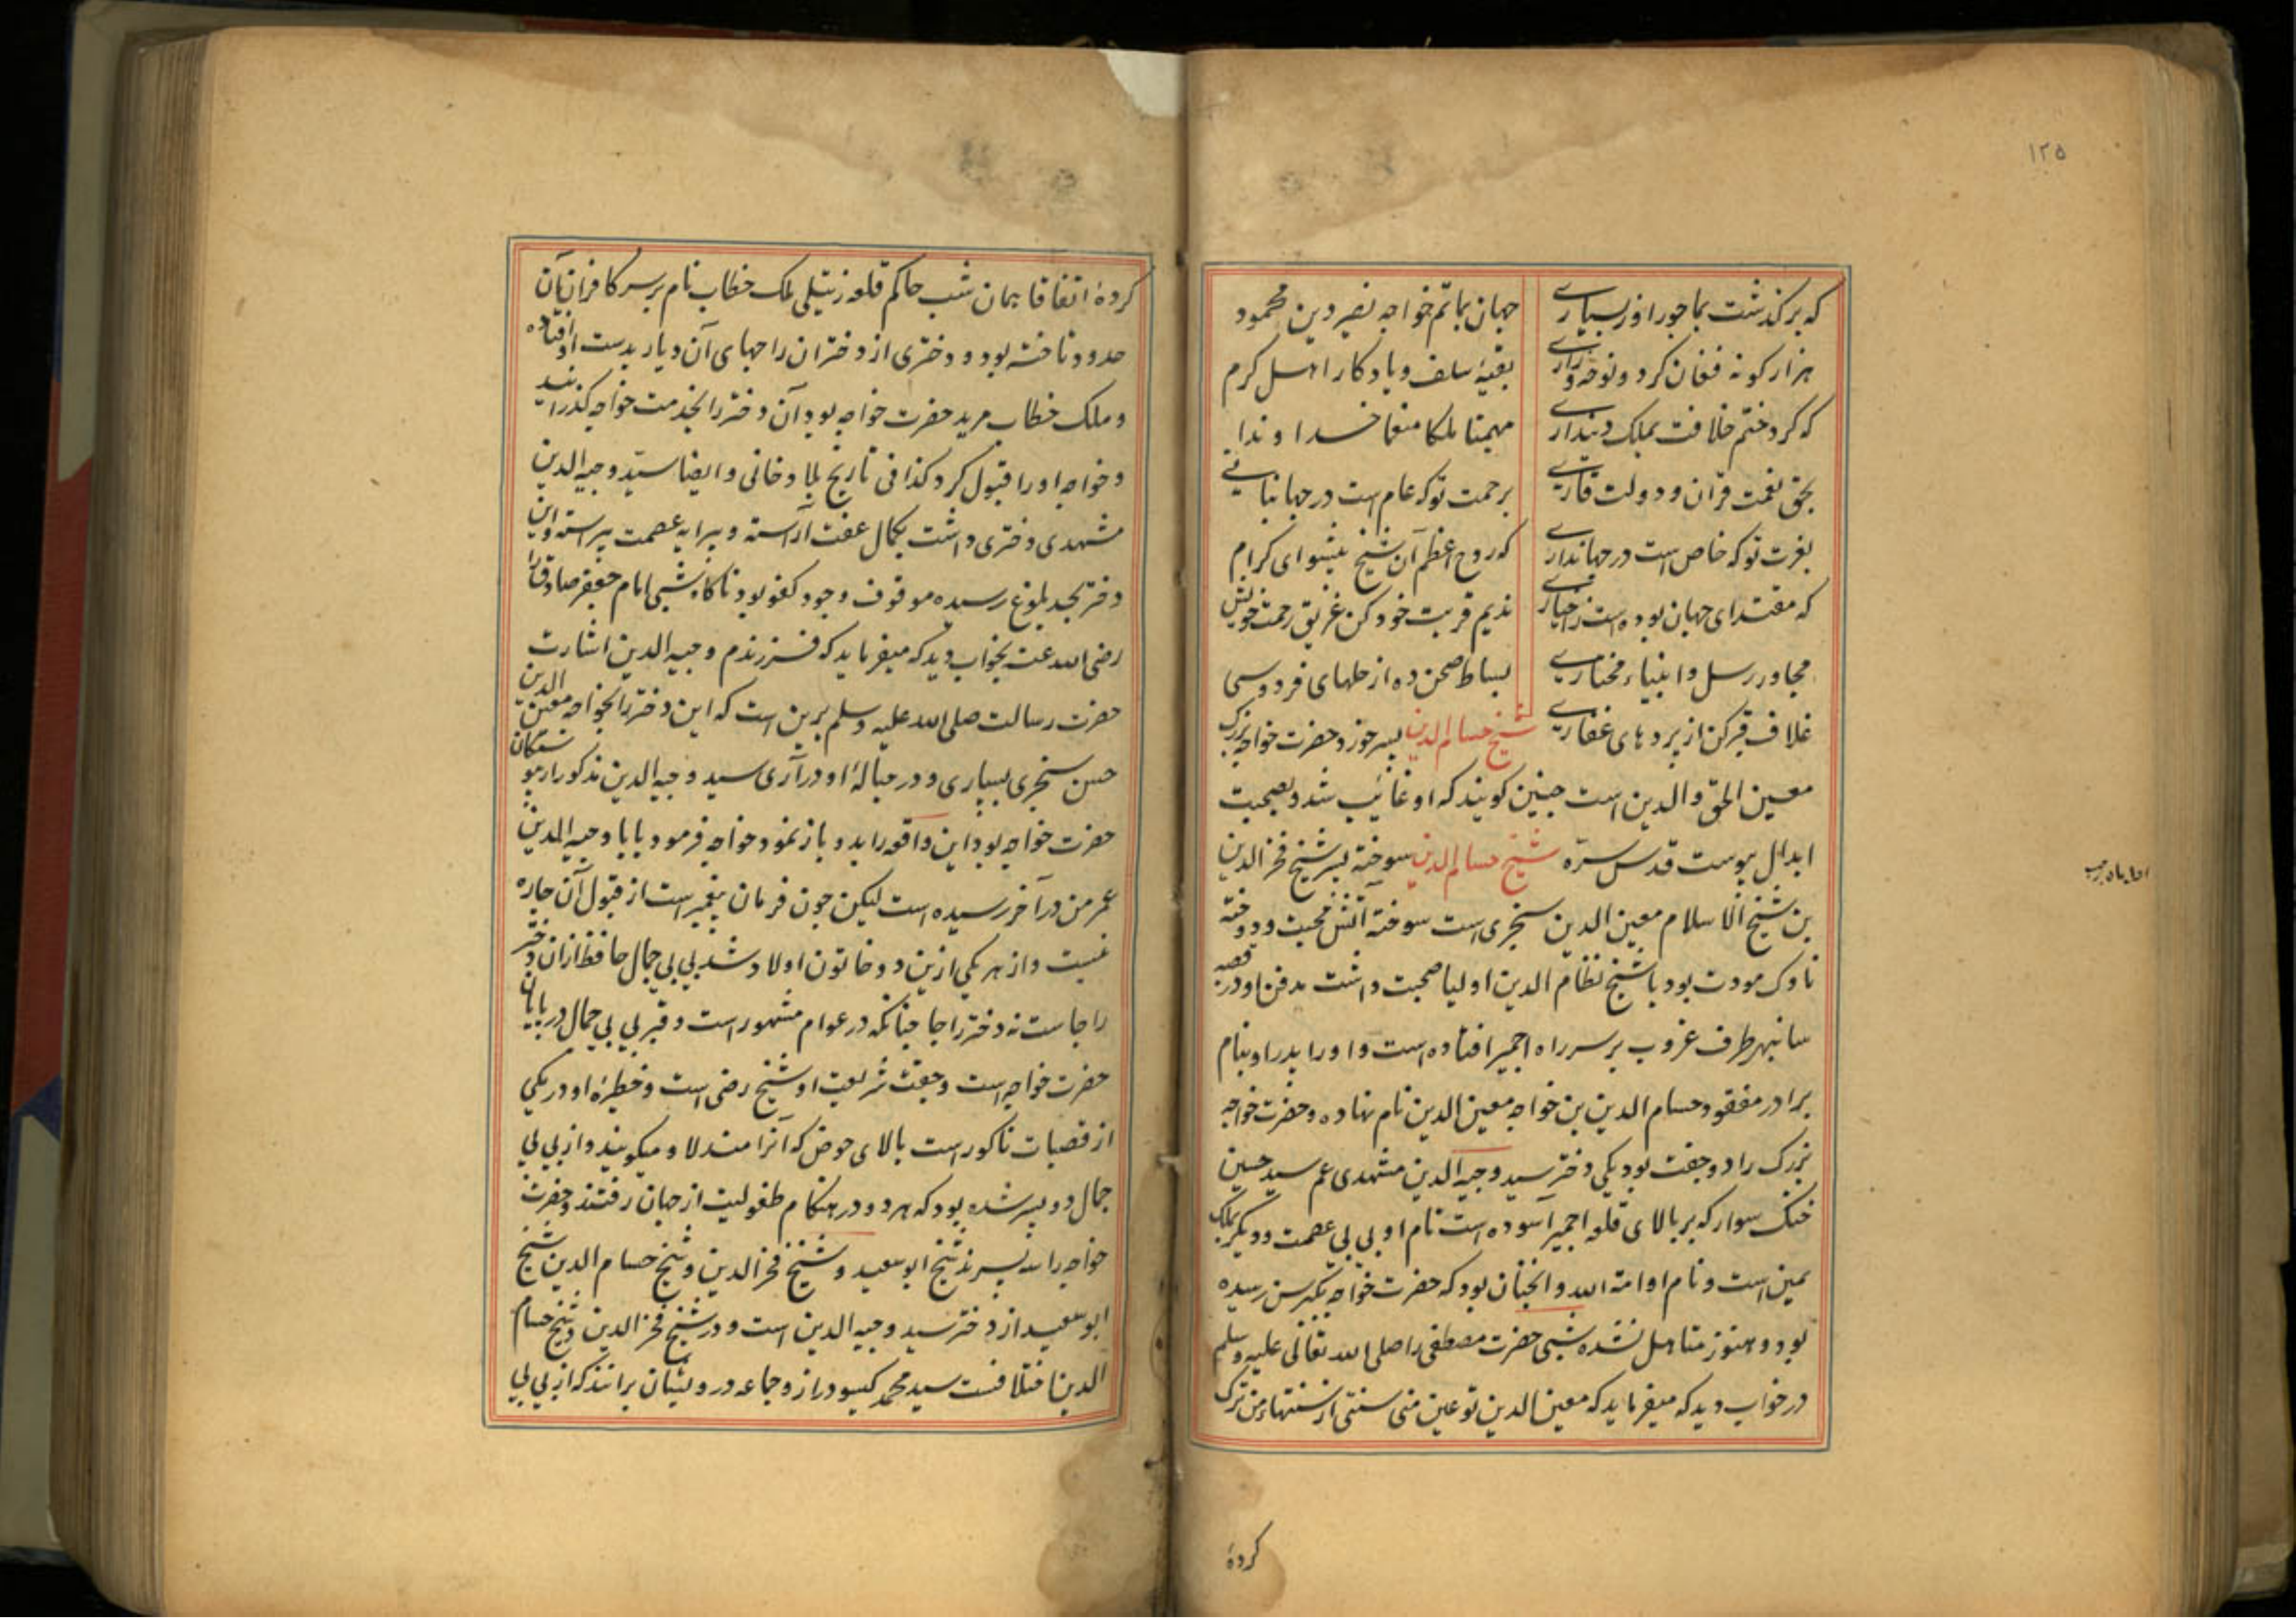 ۱۲۵
که برگذشت بما جور او ز بسیاری
جهان بماتم خواجه نصیر دین محمود
هزار کونه فغان کرد و نوحه و زاری
بقیهٔ سلف و یادکار اهل کرم
که کرد ختم خلافت بملک دینداری
مهیمنا ملکا منعما خداوندا
بحق نعمت قرآن و دولت قاری
برحمت تو که عام است در جهانبانی
بعزت تو که خاص است در جهانداری
که روح اعظم آن شیخ پیشوای کرام
که مقتدای جهان بوده است ز اخیاری
ندیم قربت خود کن غریق رحمت خویش
مجاور رسل و انبیاء مختاری
بساط صحن ده از حلهای فردوسی
غلاف قبر کن از پردهای غفاری
شیخ حسام الدین پسر خورد حضرت خواجه بزرک
معین الحق والدین است چنین کویند که او غائب شد و بصحبت
ابدال پیوست قدس سره شیخ حسام الدین سوخته پسر شیخ فخر الدین
بن شیخ الاسلام معین الدین سنجری است سوختهٔ آتش محبت و دوخته
ناوک مودت بود با شیخ نظام الدین اولیا صحبت داشت مدفن او در قصبه
سانبهر طرف غروب بر سر راه اجمیر افتاده است و او را پدر او بنام
برادر مفقود حسام الدین بن خواجه معین الدین نام نهاده و حضرت خواجه
بزرک را دو جفت بود یکی دختر سید وجیه الدین مشهدی عم سید حسین
خنک سوار که بر بالای قلعه اجمیر آسوده است نام او بی بی عصمت و دیکر بملک
یمین است و نام او امة الله و آنچنان بود که حضرت خواجه بکبر سن رسیده
بود و هنوز متاهل نشده شبی حضرت مصطفی را صلی الله تعالی علیه وسلم
در خواب دید که میفرماید که معین الدین تو عین منی سنتی از سنتهاء من ترک
کردهٔ
کردهٔ اتفاقا همان شب حاکم قلعه ملک خطاب نام بر سر کافران آن
حدود تاخته بود و دختری از دختران راجهای آن دیار بدست او افتاده
و ملک خطاب مرید حضرت خواجه بود آن دختر را بخدمت خواجه کذرانید
و خواجه او را قبول کرد کذا فی تاریخ و ایضا سید وجیه الدین
مشهدی دختری داشت بکمال عفت آراسته و پیرایه عصمت پیراسته و این
دختر بحد بلوغ رسیده موقوف وجود کفو بود ناکاه شبی امام جعفر صادق را
رضی الله عنه بخواب دید که میفرماید که فرزندم وجیه الدین اشارت
حضرت رسالت صلی الله علیه وسلم برین است که این دختر را بخواجه معین الدین
حسن سنجری بسپاری و در حبالهٔ او در آری سید وجیه الدین مذکور از
حضرت خواجه بود این واقعه را بدو باز نمود خواجه فرمود بابا وجیه الدین
عمر من در آخر رسیده است لیکن چون فرمان پیغمبر است از قبول آن چاره
نیست و از هر یکی ازین دو خاتون اولاد شد بی بی جمال حافظ ازان دختر
راجا ست نه دختر راجا چنانکه در عوام مشهور است و قبر بی بی جمال در پایان
حضرت خواجه است و جفت شریعت او شیخ رضی است و خطیرهٔ او در یکی
از قصبات ناکور است بالای حوض که آنرا مندلا و میکویند و از بی بی
جمال دو پسر شده بود که هر دو در هنکام طفولیت از جهان رفتند و حضرت
خواجه را سه پسرند شیخ ابو سعید و شیخ فخر الدین و شیخ حسام الدین شیخ
ابو سعید از دختر سید وجیه الدین است و در شیخ فخر الدین و شیخ حسام
الدین اختلافست سید محمد کیسو دراز و جماعه درویشان برانند که از بی بی